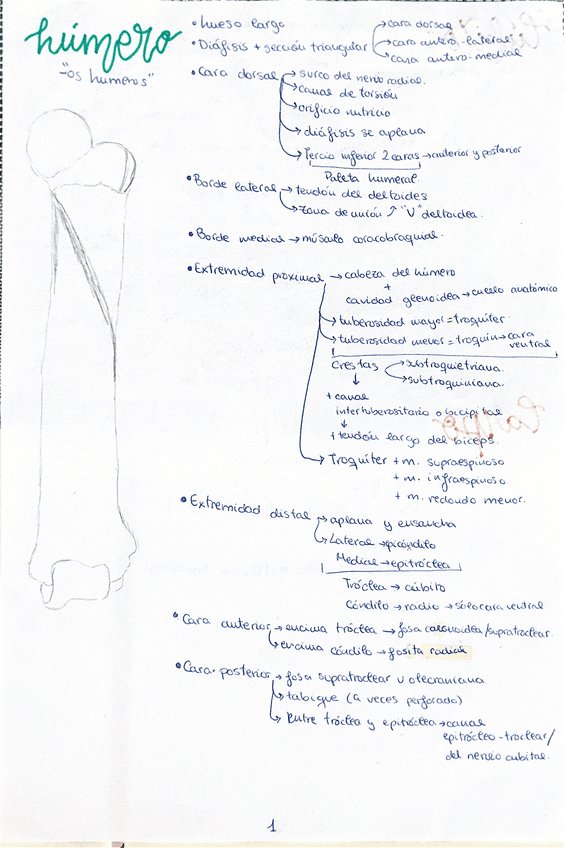 húmero
"os humerus"
• hueso largo
• Diáfisis + sección triangular → cara dorsal
→ cara antero-lateral
→ cara antero-medial
• Cara dorsal → surco del nervio radial.
→ canal de torsión
→ orificio nutricio
→ diáfisis se aplana
→ Tercio inferior 2 caras → anterior y posterior
Paleta humeral.
• Borde lateral → tendón del deltoides
→ zona de unión ↗ "V" deltoidea.
• Borde medial → músculo coracobraquial.
• Extremidad proximal → cabeza del húmero
+
cavidad glenoidea → cuello anatómico
→ tuberosidad mayor = troquiter.
→ tuberosidad menor = troquin → cara
ventral
Crestas → subtroquietriana.
→ subtroquiniana.
↓
+ canal
intertuberositario o bicipital
↓
+ tendón largo del bíceps.
→ Troquiter + m. supraespinoso
+ m. infraespinoso
+ m. redondo menor.
• Extremidad distal → aplana y ensancha
→ Lateral → epicóndilo
Medial → epitróclea
Tróclea → cúbito
Cóndilo → radio → sólo cara ventral
• Cara anterior → encima tróclea → fosa coronoidea/supratroclear.
→ encima cóndilo → fosita radial
• Cara posterior → fosa supratroclear u olecraniana
→ tabique (a veces perforado)
→ Entre tróclea y epitróclea → canal
epitrócleo-troclear/
del nervio cubital.
1